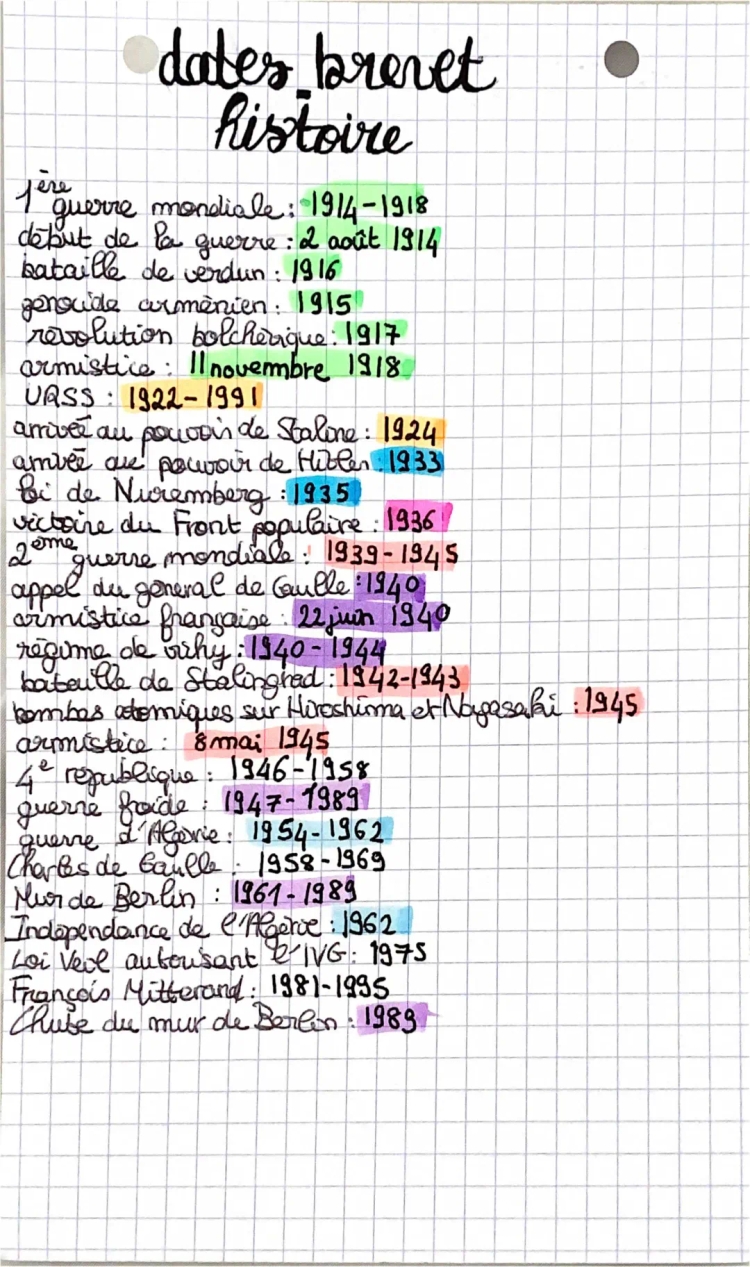 dates brevet
histoire
1ère guerre mondiale : 1914-1918
début de la guerre : 2 août 1914
bataille de verdun : 1916
génocide arménien : 1915
révolution bolchévique : 1917
armistice : 11 novembre 1918
URSS : 1922-1991
arrivée au pouvoir de Staline : 1924
arrivée au pouvoir de Hitler : 1933
loi de Nuremberg : 1935
victoire du Front populaire : 1936
2ème guerre mondiale : 1939-1945
appel du général de Gaulle : 1940
armistice française : 22 juin 1940
régime de vichy : 1940-1944
bataille de Stalingrad : 1942-1943
bombes atomiques sur Hiroshima et Nagasaki : 1945
armistice : 8 mai 1945
4e république : 1946-1958
guerre froide : 1947-1989
guerre d'Algérie : 1954-1962
Charles de Gaulle : 1958-1969
Mur de Berlin : 1961-1989
Indépendance de l'Algérie : 1962
Loi Veil autorisant l'IVG : 1975
François Mitterand : 1981-1995
Chute du mur de Berlin : 1989